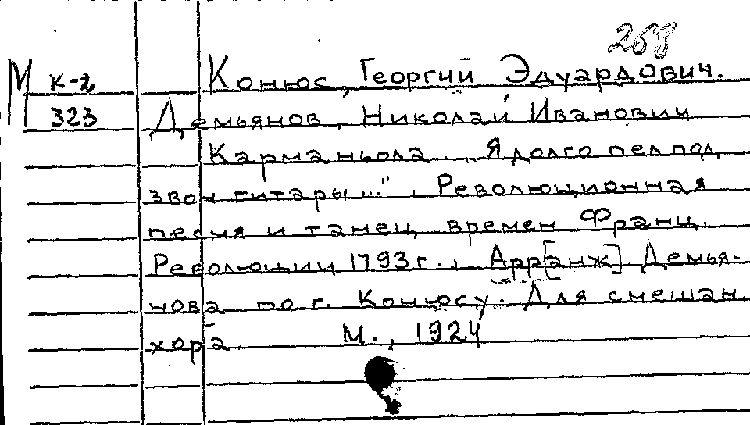 268
М К-2 Конюс, Георгий Эдуардович.
323 Демьянов, Николай Иванович
Карманьола. "Я долго пел под
звон гитары...". Революционная
песня и танец времен Франц.
Революции 1793 г., Арр[анж] Демья-
нова по г. Конюсу. Для смешан.
хора М., 1924